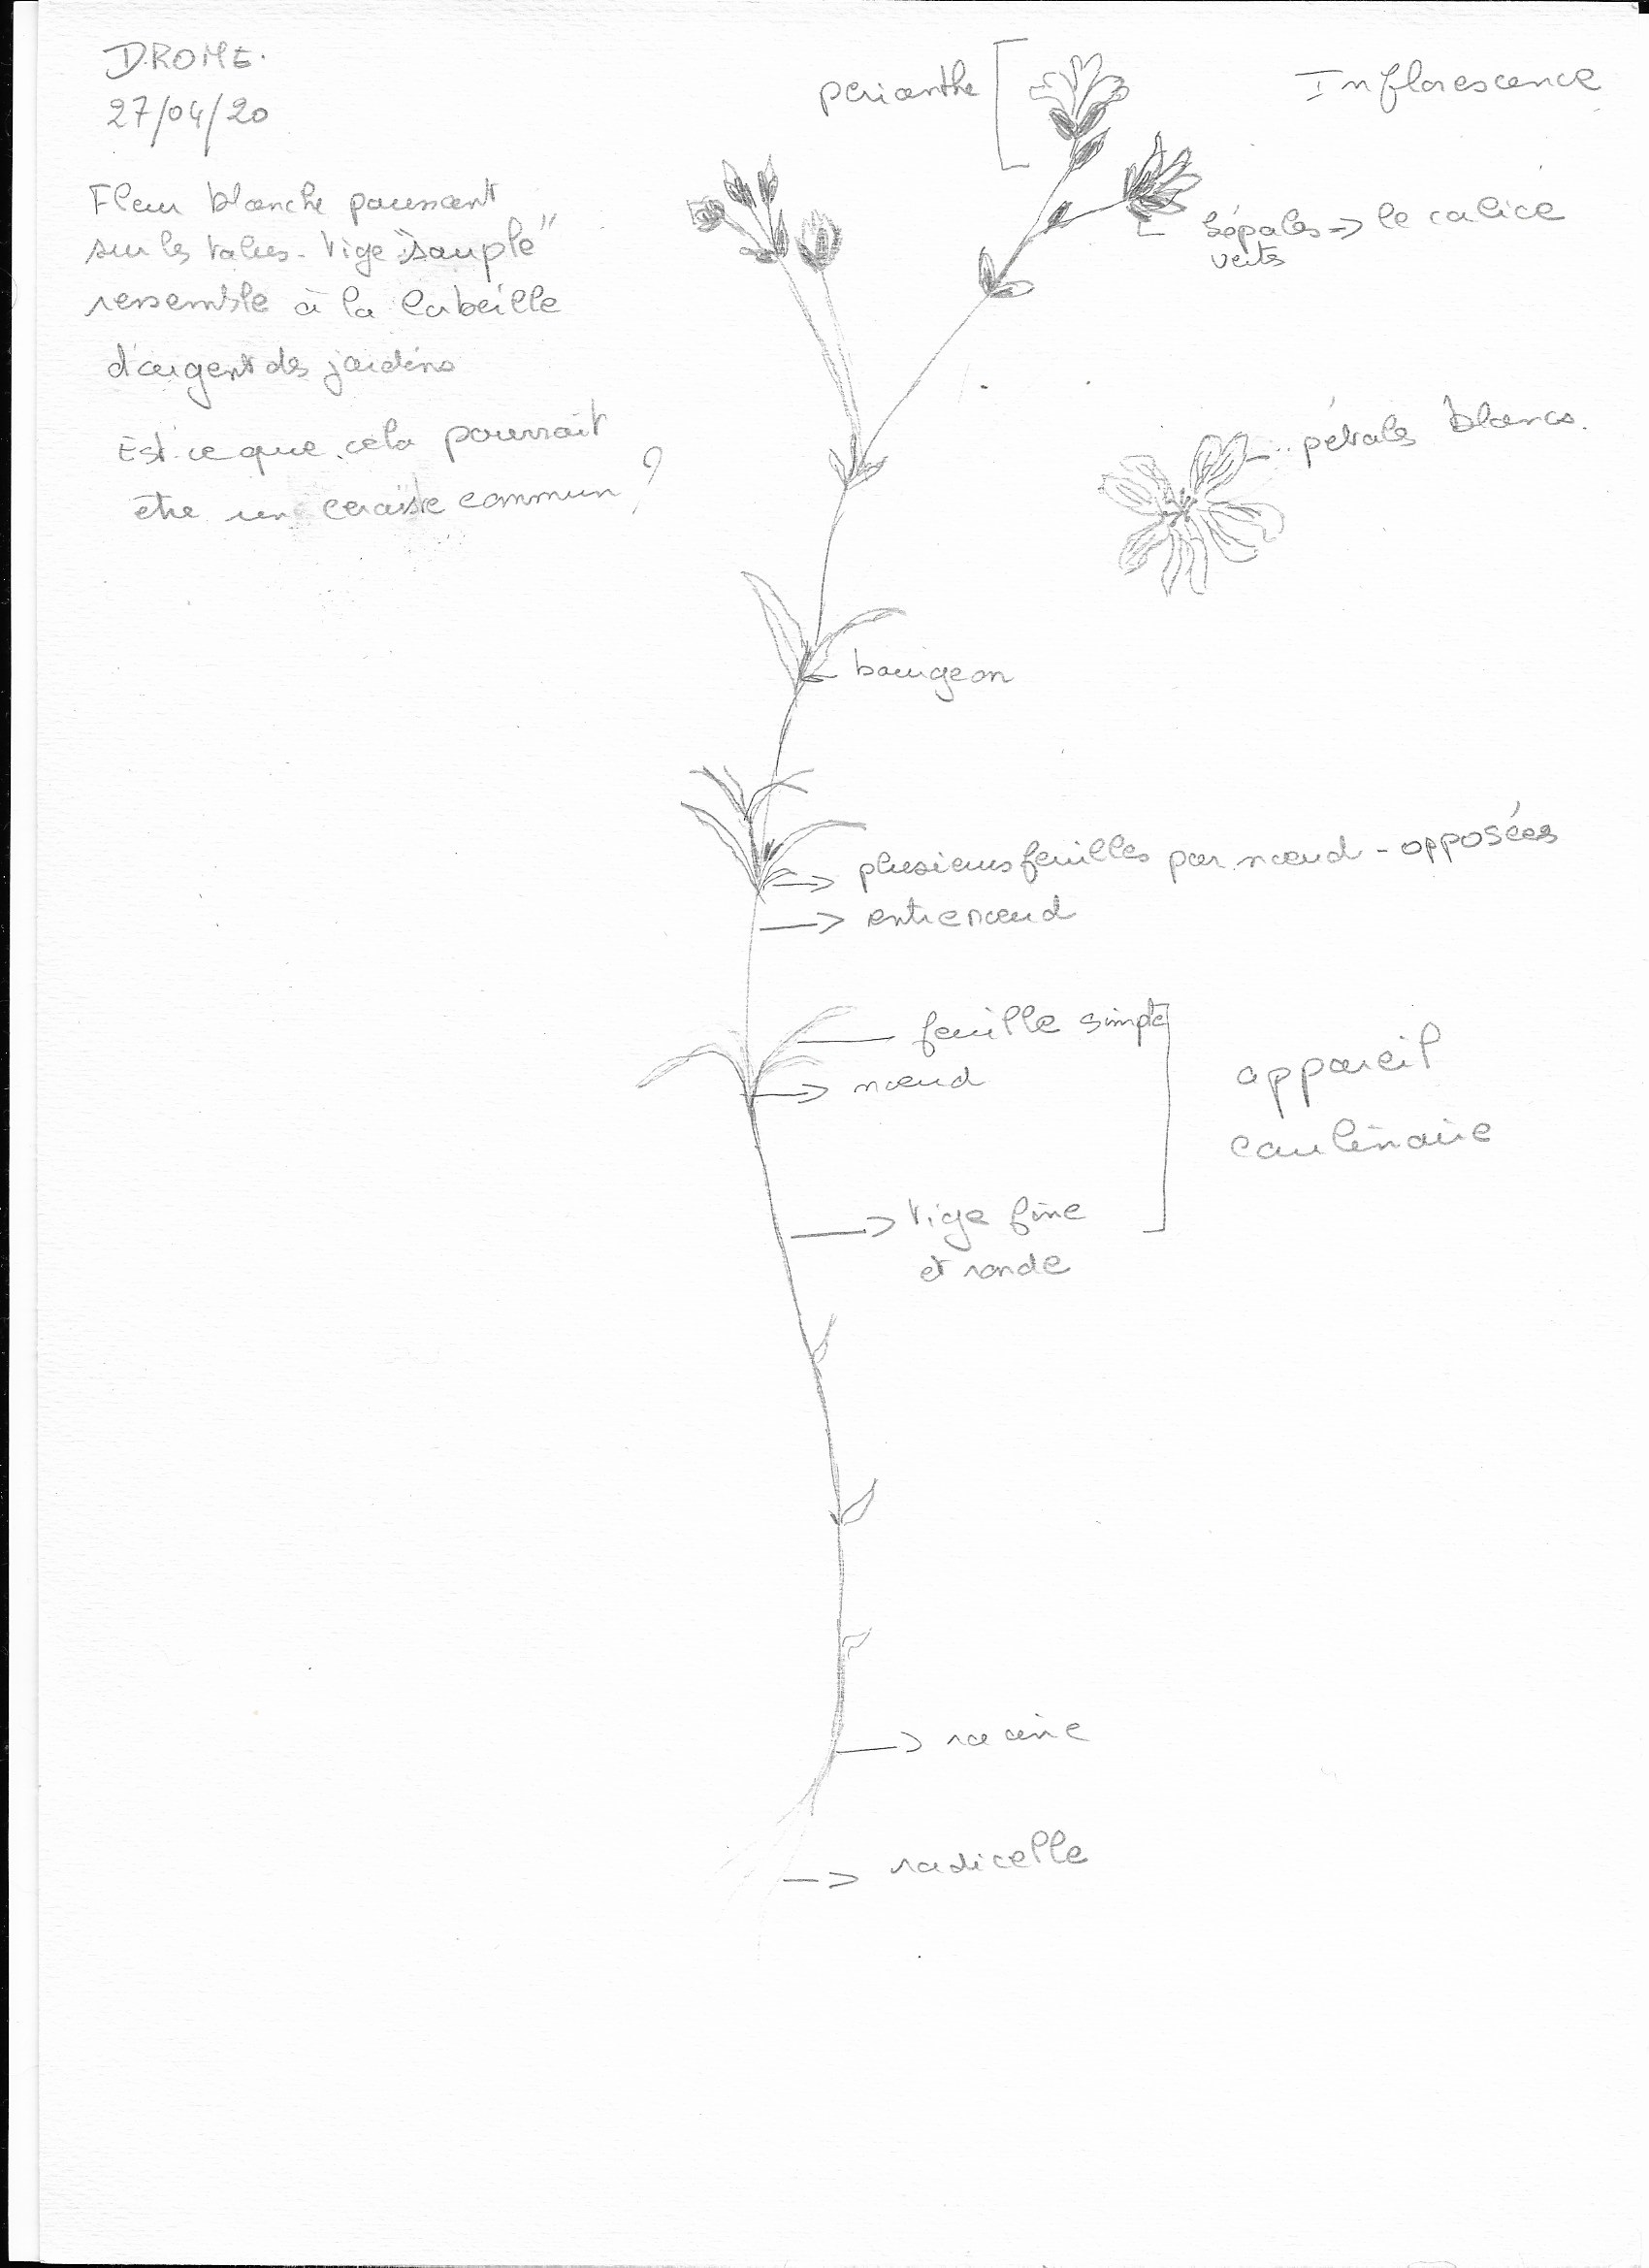 DROME.
27/04/20
Fleur blanche poussant
sur les talus - tige "souple"
ressemble à la corbeille
d'argent des jardins
Est-ce que cela pourrait
être un ceraiste commun ?
perianthe
Inflorescence
Sépales => le calice
verts
pétales blancs.
bourgeon
plusieurs feuilles par noeud - opposées
entrenoeud
feuille simple
noeud
appareil
caulinaire
tige fine
et ronde
racine
radicelle